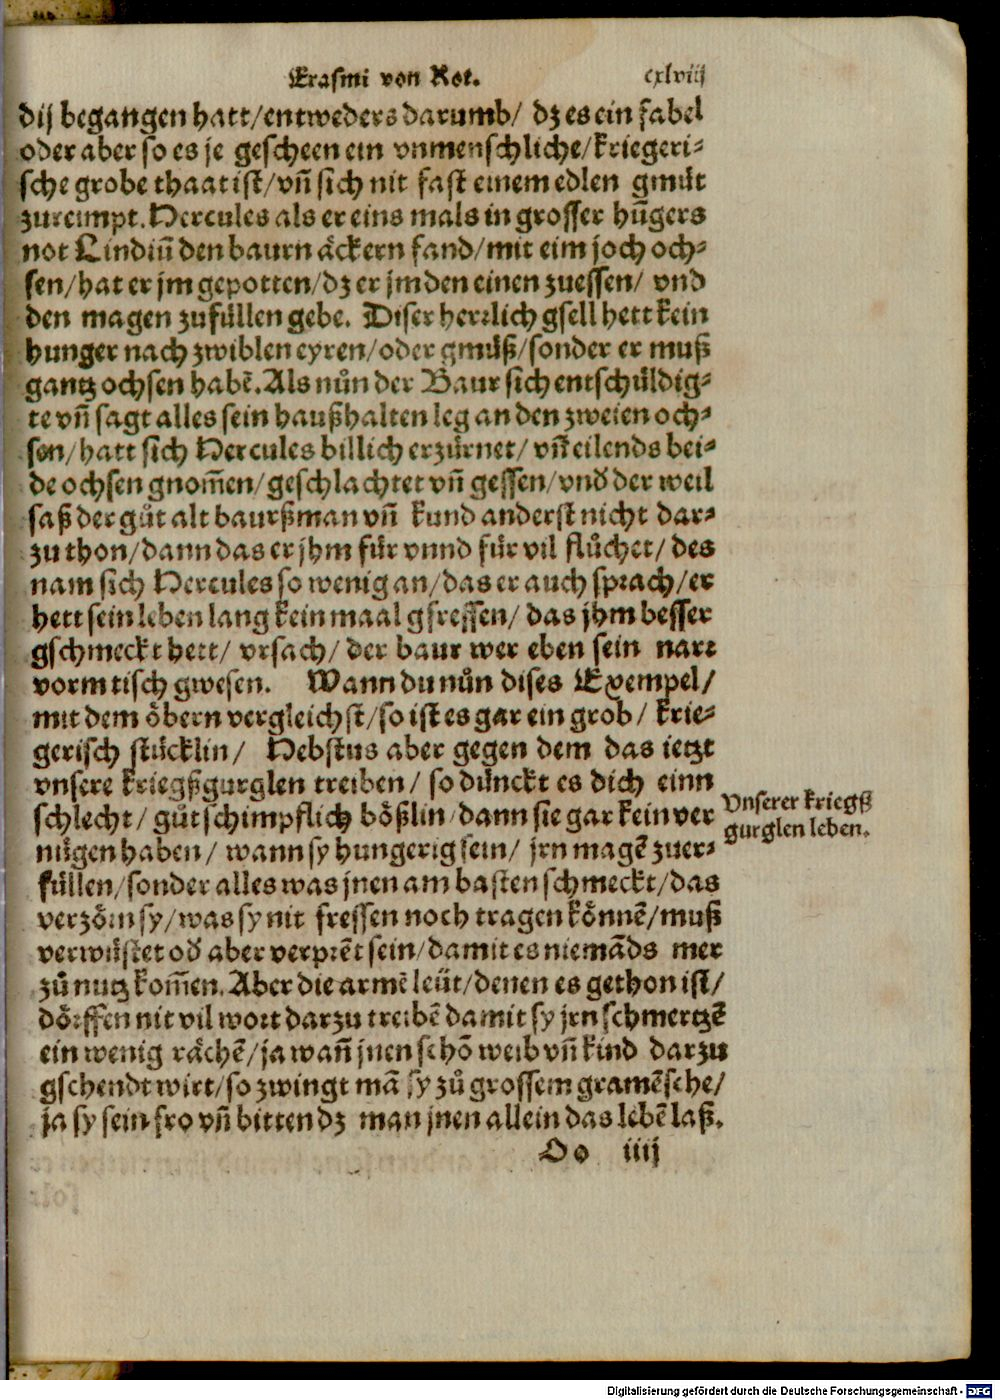 Erasmi von Rot. cxlviij
dij begangen hatt/entweders darumb/ dz es ein fabel
oder aber so es je gescheen ein vnmenschliche/kriegeri-
sche grobe thaat ist/vñ sich nit fast einem edlen gmüt
zureimpt. Hercules als er eins mals in grosser hũgers
not Lindiũ den baurn äckern fand/mit eim joch och-
sen/hat er jm gepotten/dz er jm den einen zuessen/ vnd
den magen zufüllen gebe. Diser herrlich gsell hett kein
hunger nach zwiblen eyren/oder gmüß/sonder er muß
gantz ochsen habẽ. Als nůn der Baur sich entschüldig-
te vñ sagt alles sein haußhalten leg an den zweien och-
sen/hatt sich Hercules billich erzürnet/ vñ eilends bei-
de ochsen gnom̃en/geschlachtet vñ gessen/vnd der weil
saß der gůt alt baurßman vñ kund anderst nicht dar-
zu thon/dann das er jhm für vnnd für vil flůchet/ des
nam sich Hercules so wenig an/das er auch sprach/er
hett sein leben lang kein maal gfressen/ das jhm besser
gschmeckt hett/ vrsach/ der baur wer eben sein narr
vorm tisch gwesen. Wann du nůn dises Exempel/
mit dem öbern vergleichst/so ist es gar ein grob/ krie-
gerisch stücklin/ Hebstus aber gegen dem das ietzt
vnsere kriegßgurglen treiben/ so dünckt es dich einn
schlecht/ gůt schimpflich bößlin/dann sie gar kein ver
nügen haben/ wann sy hungerig sein/ jrn magẽ zuer-
füllen/sonder alles was jnen am basten schmeckt/das
verzörn sy/was sy nit fressen noch tragen könnẽ/muß
verwüstet oď aber verprẽt sein/damit es niemãds mer
zů nutz kom̃en. Aber die armẽ leüt/denen es gethon ist/
dörffen nit vil wort darzu treibẽ damit sy jrn schmertzẽ
ein wenig rächẽ/ja wañ jnen schõ weib vñ kind darzu
gschendt wirt/so zwingt mã sy zů grossem gramẽsche/
ja sy sein fro vñ bitten dz man jnen allein das lebẽ laß.
Vnserer kriegß
gurglen leben.
Oo iiij
Digitalisierung gefördert durch die Deutsche Forschungsgemeinschaft - DFG